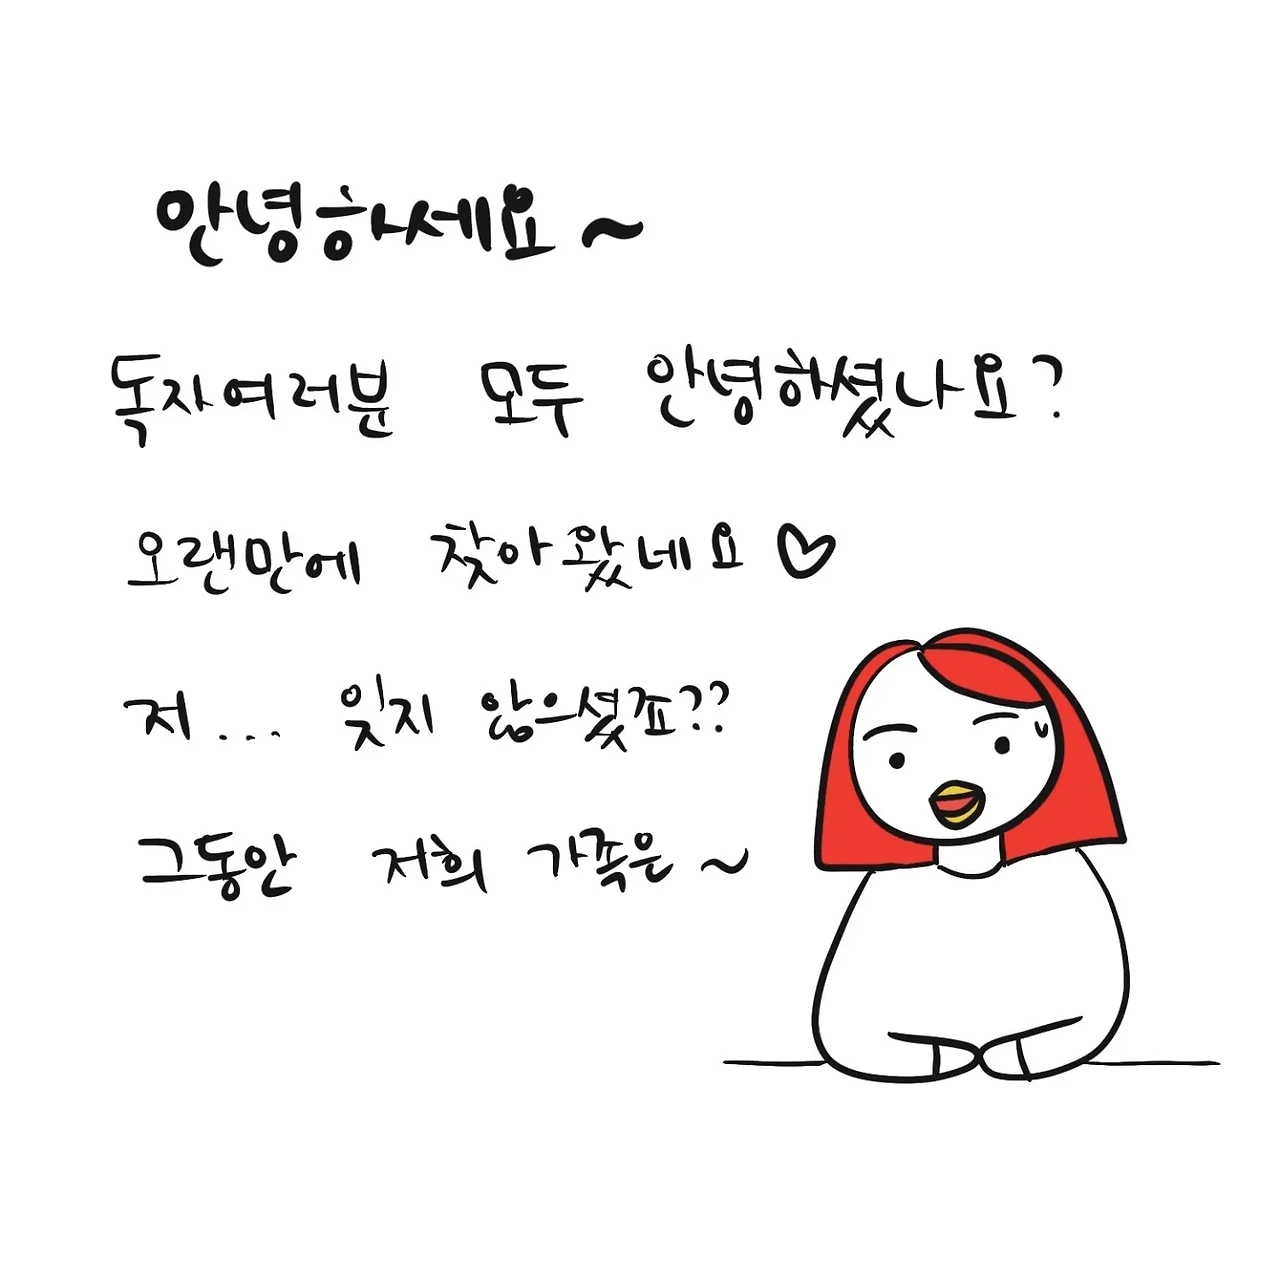 안녕하세요~
독자여러분 모두 안녕하셨나요?
오랜만에 찾아왔네요♡
저... 잊지 않으셨죠??
그동안 저희 가족은~